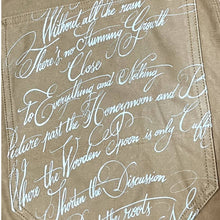 Without all the rain
There's no Stunning Growth
Close
To Everything and Nothing
picture past the Honeymoon and
Where the Wooden Spoon is only
Shorten the Discussion
the roots